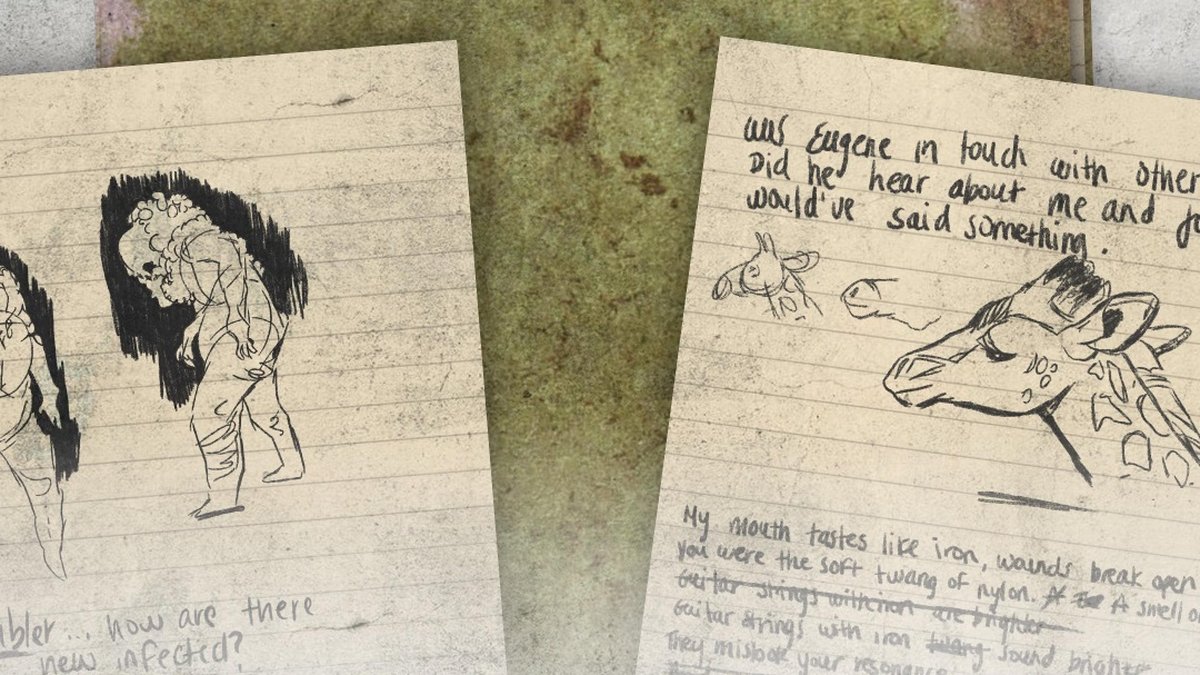 bler... how are there
new infected?
was Eugene in touch with other
Did he hear about me and
would've said something.
My mouth tastes like iron, wounds break open
you were the soft twang of nylon. A A smell
Guitar strings with iron are brighter
Guitar strings with iron twang sound brighter
They mistook your resonance